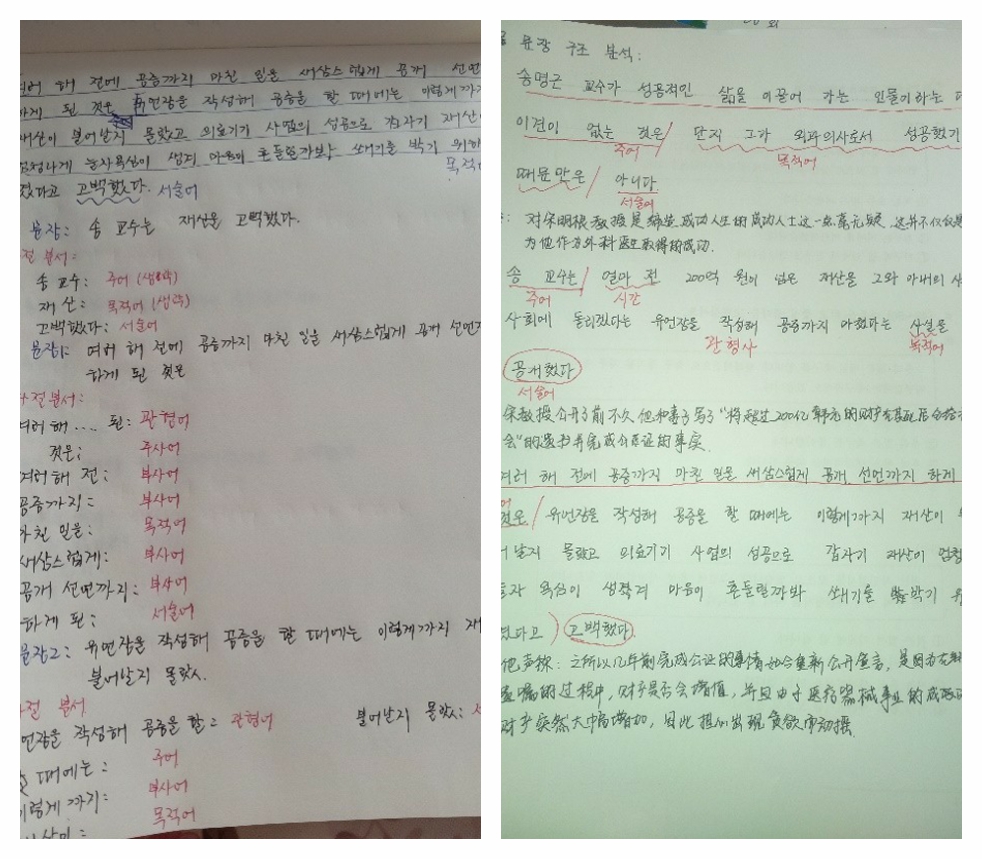 여러 해 전에 공증까지 마친 일을 새삼스럽게 공개 선언
하게 된 것은 유언장을 작성해 공증을 할 때에는 이렇게까지
재산이 불어날지 몰랐고 의료기기 사업의 성공으로 갑자기 재산이
생겨 마음이 흔들릴까봐 쐐기를 박기 위해
목적어
했다고 고백했다. 서술어
문장: 송 교수는 재산을 고백했다.
절 분석:
송 교수: 주어 (생략)
재 산: 목적어 (생략)
고백했다: 서술어
문장1: 여러 해 전에 공증까지 마친 일을 새삼스럽게 공개 선언까지
하게 된 것은
절 분석:
여러 해.... 된: 관형어
것은: 주사어
여러 해 전: 부사어
공증까지: 부사어
마친 일을: 목적어
새삼스럽게: 부사어
공개 선언까지: 부사어
하게 된: 서술어
문장2: 유언장을 작성해 공증을 할 때에는 이렇게까지 재
불어날지 몰랐.
절 분석
언장을 작성해 공증을 할: 관형어 불어날지 몰랐: 서
때에는: 주어
이렇게까지: 부사어
목적어
문장 구조 분석:
송명근 교수가 성공적인 삶을 이끌어 가는 인물이라는 데
이견이 없는 것은/ 단지 그가 외과의사로서 성공했기
주어 목적어
때문만은/ 아니다
서술어
对宋明根教授是缔造成功人生的成功人士这一点毫无疑, 这并不仅仅是
为他作为外科医生取得的成功.
송 교수는/ 얼마 전 200억 원이 넘은 재산을 그와 아내의 사
주어 시간
사회에 돌리겠다는 유언장을 작성해 공증까지 마쳤다는 사실을
관형사 목적어
공개했다
서술어
宋教授公开了前不久他和妻子写了"将超过200亿韩元的财产在其死后给
会"的遗书并完成公证的事实.
여러 해 전에 공증까지 마친 일을 새삼스럽게 공개 선언까지 하게
것은/ 유언장을 작성해 공증을 할 때에는 이렇게까지 재산이
날지 몰랐고 의료기기 사업의 성공으로 갑자기 재산이 엄청
욕심이 생겨 마음이 흔들릴까봐 쐐기를 박기
했다고) 고백했다.
他声称: 之所以几年前完成公证的事情如今重新公开宣言, 是因为在
遗嘱的过程中, 财产是否会增值, 并且由于医疗器械事业的成功
财产突然大中幅增加, 因此担心出现贪欲而动摇.